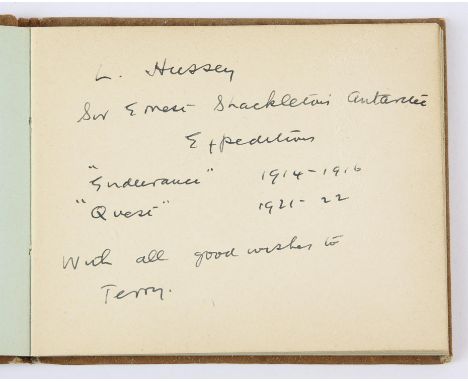 L. Hussey
Sir Ernest Shackleton's Antarctic
Expeditions
"Endurance" 1914-1916
"Quest" 1921-22
With all good wishes to
Terry.